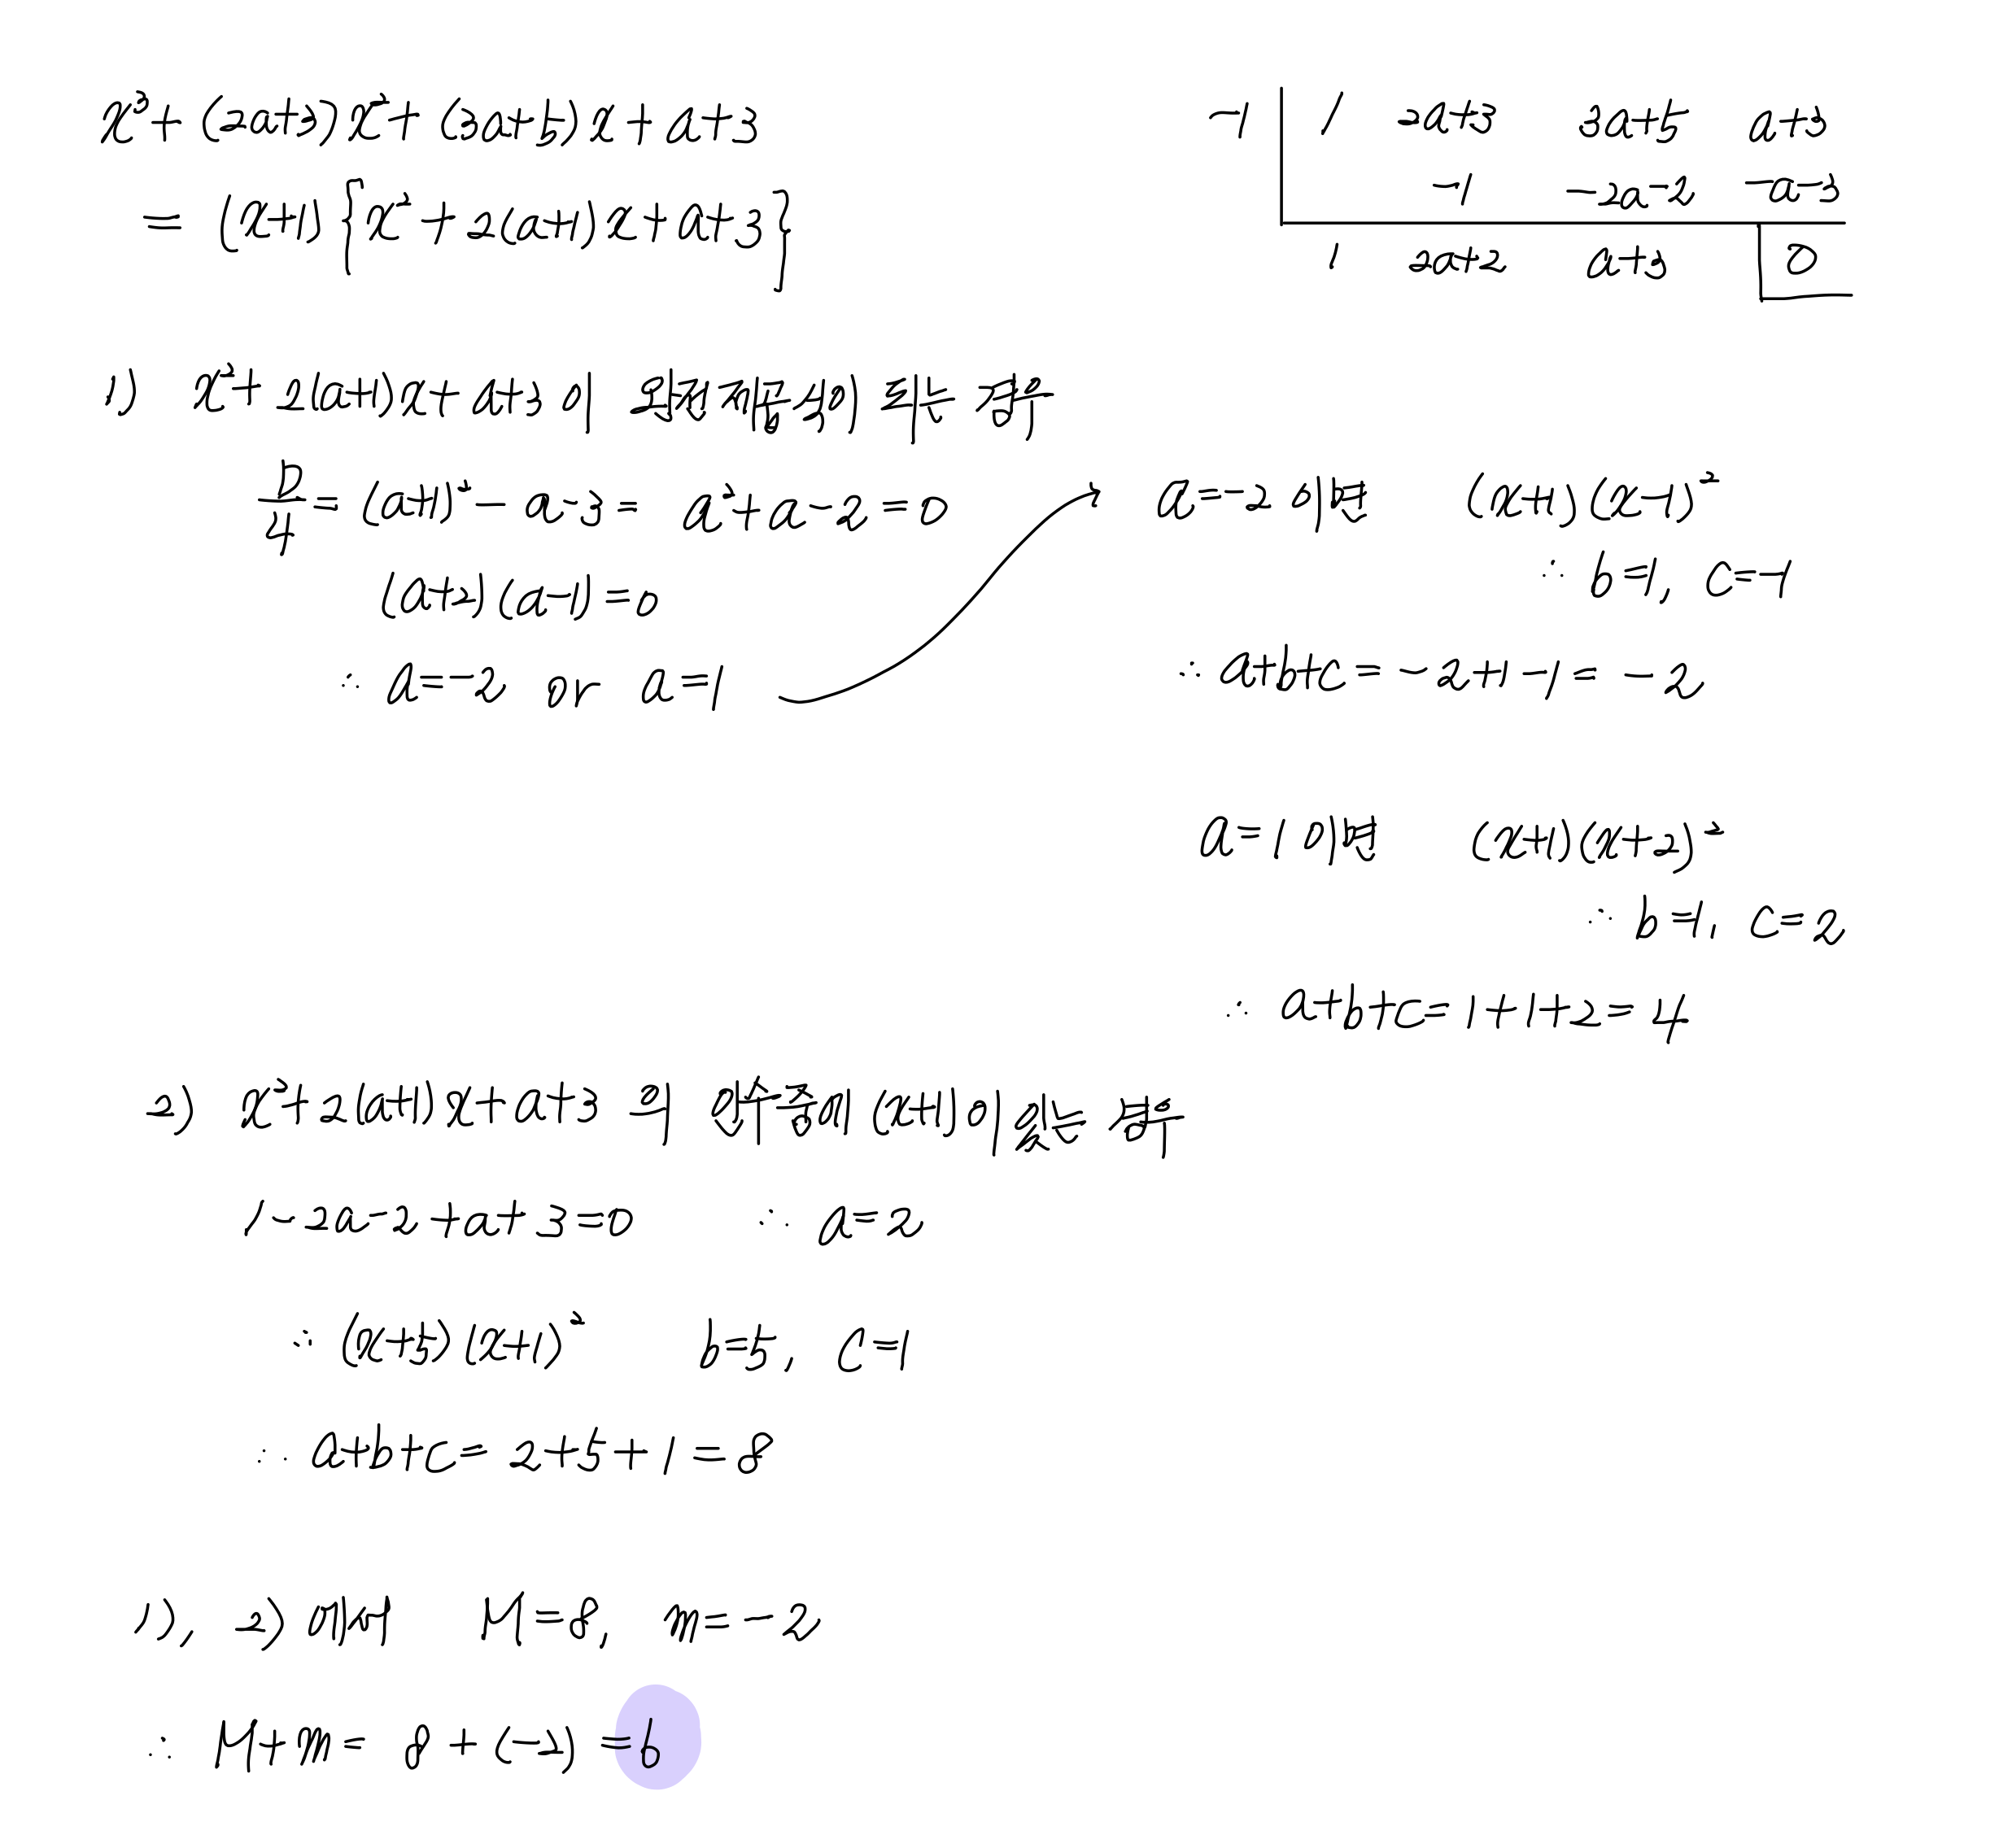 x³+(2a+3)x²+(3a+5)x+a+3
= (x+1){x²+2(a+1)x+a+3}
-1 | 1 2a+3 3a+5 a+3
-1 -2a-2 -a-3
1 2a+2 a+3 0
1) x²+2(a+1)x+a+3이 완전제곱식이 되는 경우
D/4 = (a+1)²-a-3 = a²+a-2=0
(a+2)(a-1)=0
∴ a=-2 or a=1
a=-2 이면 (x+1)(x-1)²
∴ b=1, c=-1
∴ a+b+c = -2+1-1 = -2
a=1 이면 (x+1)(x+2)²
∴ b=1, c=2
∴ a+b+c=1+1+2=4
2) x²+2(a+1)x+a+3 의 인수중에 (x+1)이 있는 경우
1-2a-2+a+3=0 ∴ a=2
∴ (x+5)(x+1)² b=5, c=1
∴ a+b+c = 2+5+1=8
1), 2) 에서 M=8, m=-2
∴ M+m= 8+(-2) =6